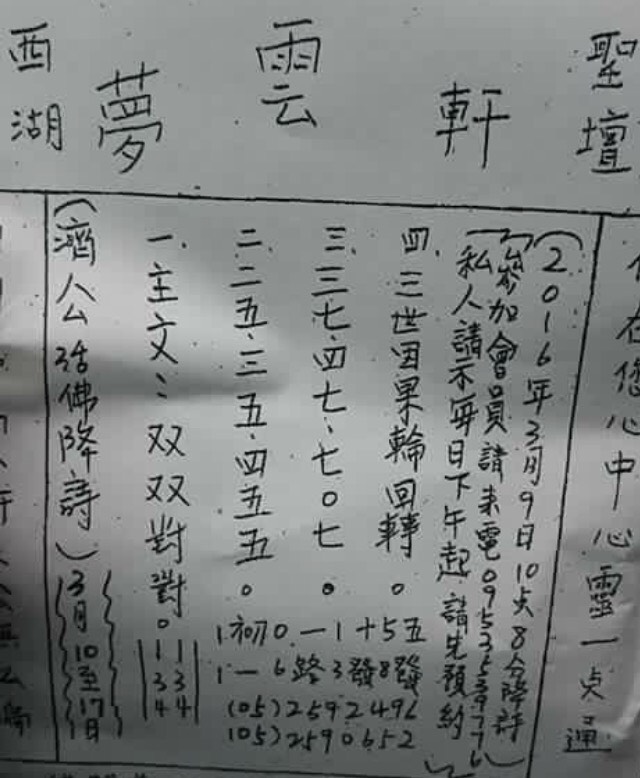 西湖 夢雲軒 聖壇
(濟公活佛降詩) 3月10至17日
一.主文:双双對對。
11
33
44
二.二五.三五.四五五。
三.三七.四七.七0七。
四.三世因果輪回轉。
1初0一1十5五
1一6路3發8發
(05)2592496
(05)2590652
私人請示每日下午起請先預約
參加會員請來電
(2016年3月9日10点8分降詩)
在您心中心靈一点通